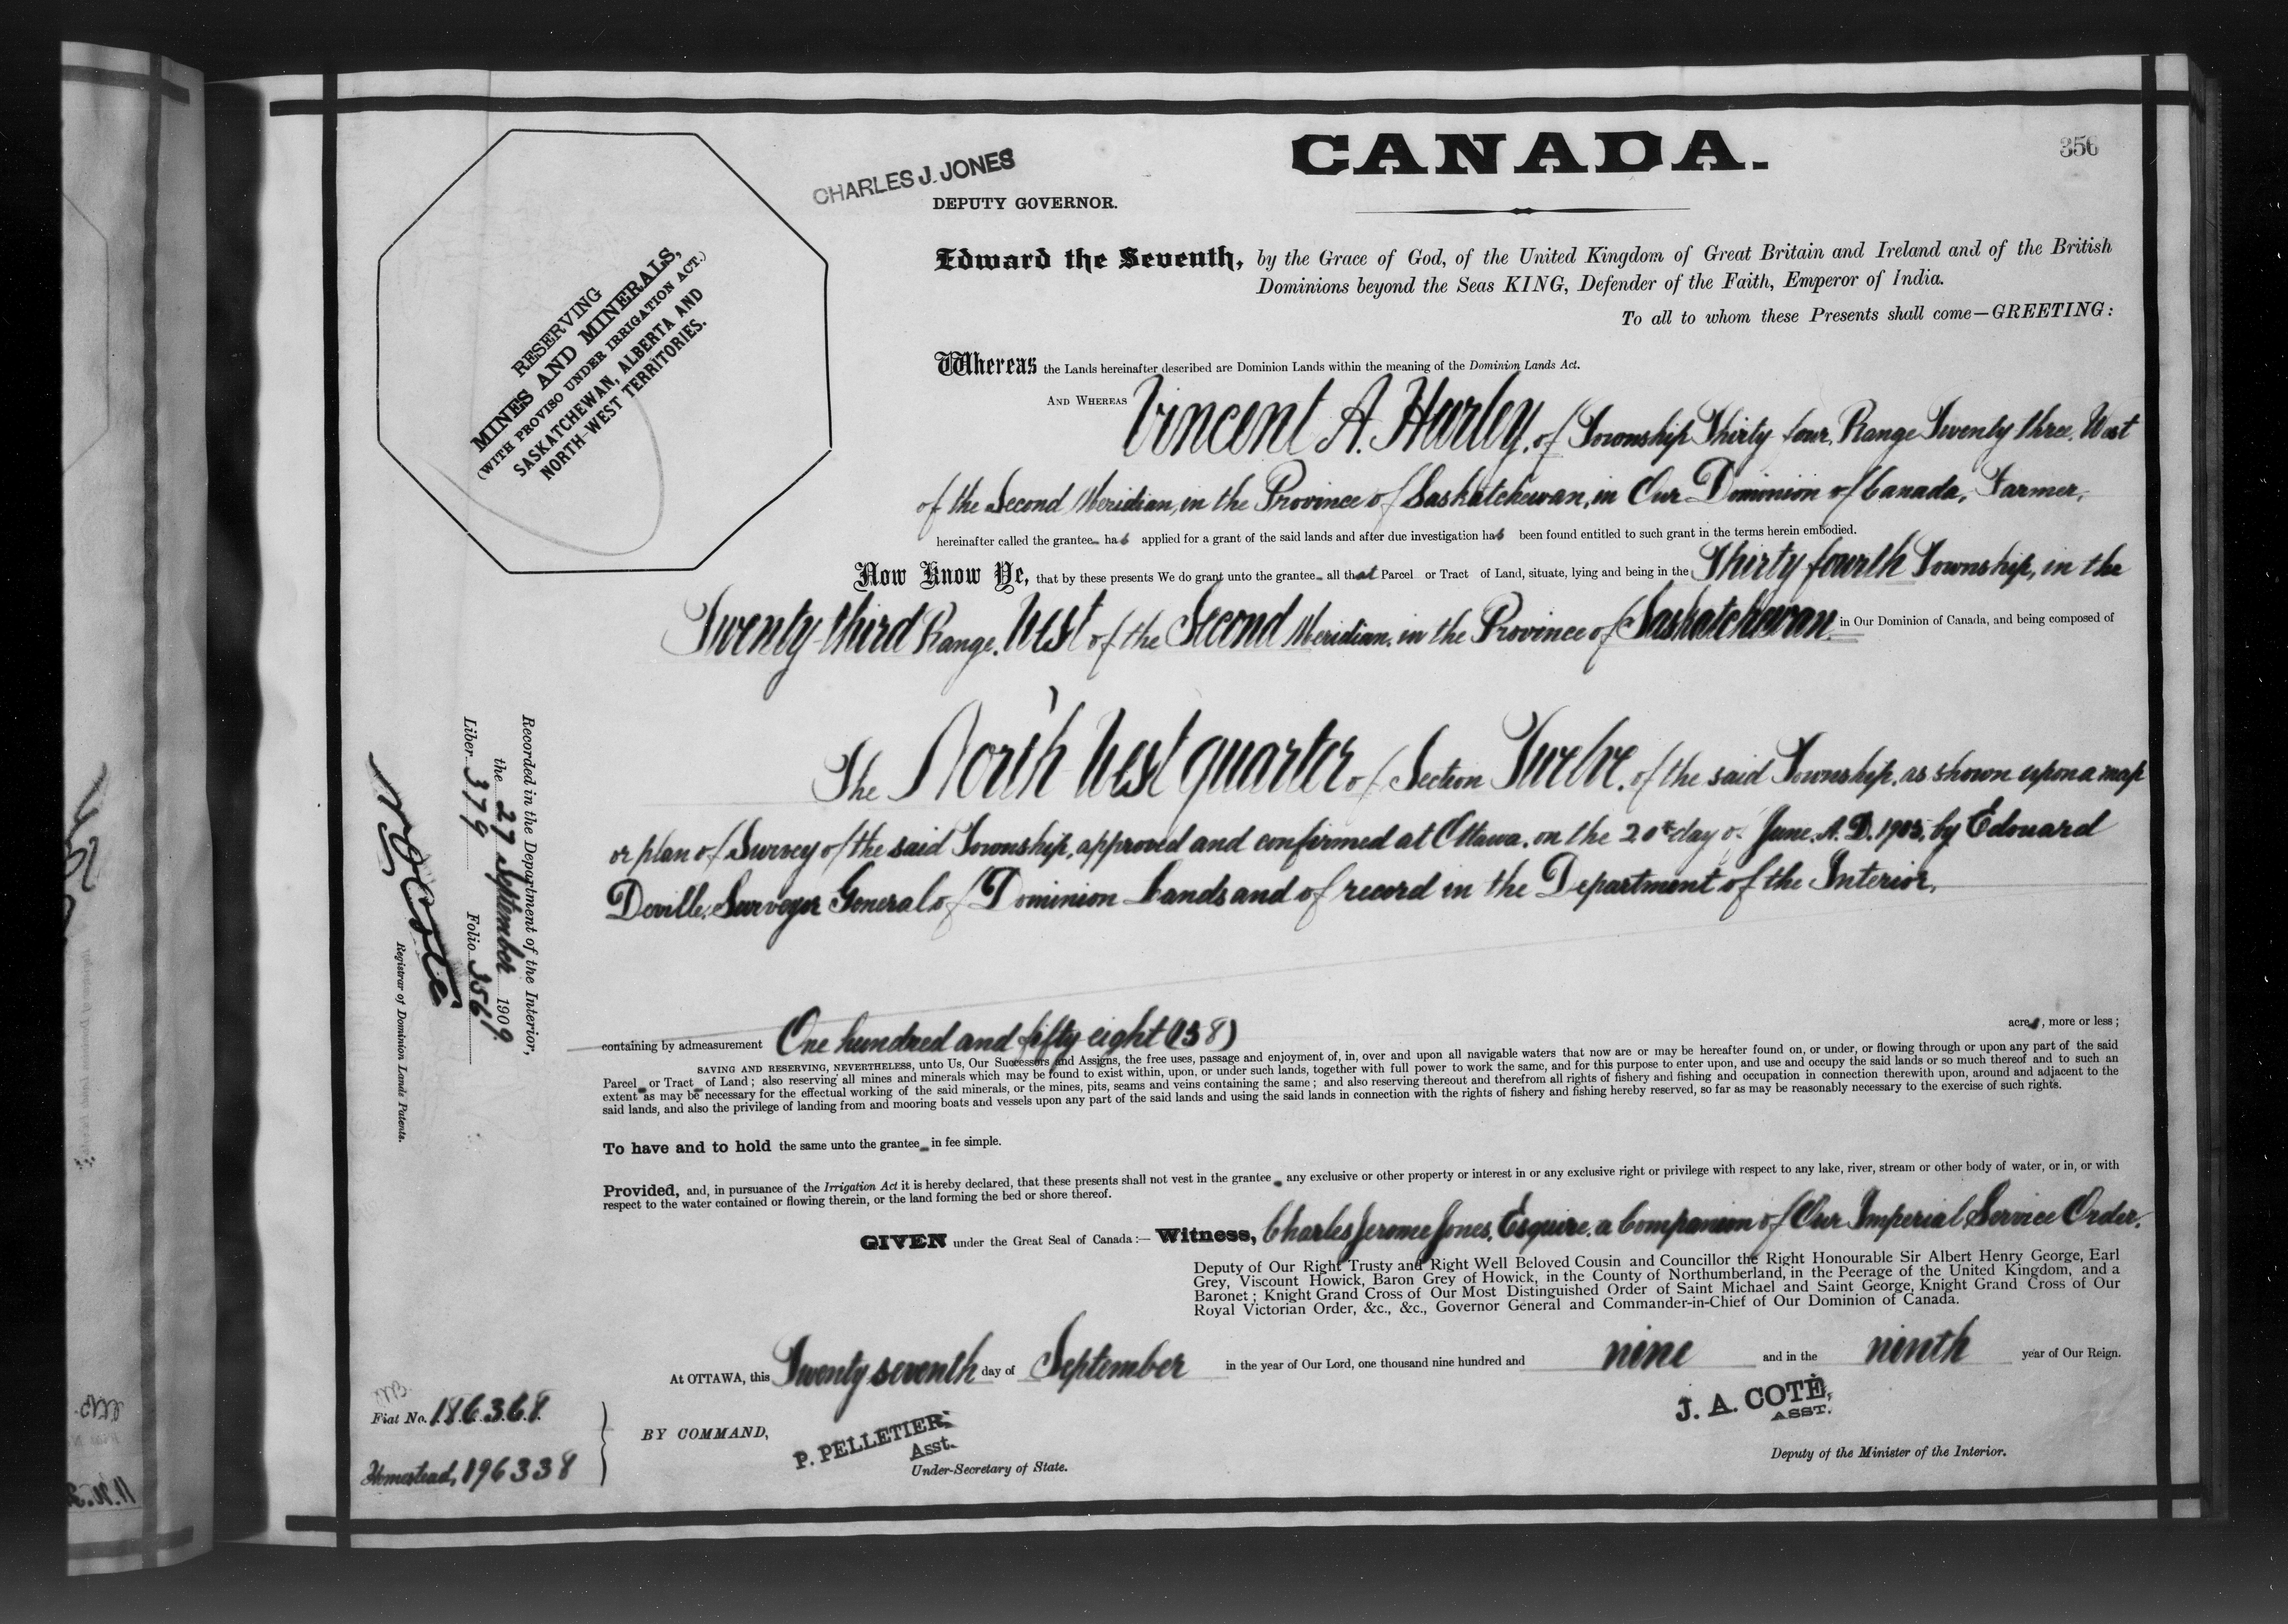 CANADA.
356
CHARLES J. JONES
DEPUTY GOVERNOR.
RESERVING
MINES AND MINERALS,
(WITH PROVISO UNDER IRRIGATION ACT.)
SASKATCHEWAN, ALBERTA AND
NORTH-WEST TERRITORIES.
Edward the Seventh, by the Grace of God, of the United Kingdom of Great Britain and Ireland and of the British
Dominions beyond the Seas KING, Defender of the Faith, Emperor of India.
To all to whom these Presents shall come—GREETING:
Whereas the Lands hereinafter described are Dominion Lands within the meaning of the Dominion Lands Act.
AND WHEREAS Vincent A. Hurley, of Township Thirty four, Range Twenty three, West
of the Second Meridian, in the Province of Saskatchewan, in Our Dominion of Canada, Farmer,
hereinafter called the grantee has applied for a grant of the said lands and after due investigation has been found entitled to such grant in the terms herein embodied.
Now Know Ye, that by these presents We do grant unto the grantee all that Parcel or Tract of Land, situate, lying and being in the Thirty fourth Township, in the
Twenty-third Range, West of the Second Meridian, in the Province of Saskatchewan in Our Dominion of Canada, and being composed of
The North West quarter of Section Twelve, of the said Township, as shown upon a map
or plan of Survey of the said Township, approved and confirmed at Ottawa, on the 20th day of June, A.D. 1905, by Edouard
Deville, Surveyor General of Dominion Lands and of record in the Department of the Interior,
containing by admeasurement One hundred and fifty eight (158) acres, more or less;
SAVING AND RESERVING, NEVERTHELESS, unto Us, Our Successors and Assigns, the free uses, passage and enjoyment of, in, over and upon all navigable waters that now are or may be hereafter found on, or under, or flowing through or upon any part of the said
Parcel or Tract of Land; also reserving all mines and minerals which may be found to exist within, upon, or under such lands, together with full power to work the same, and for this purpose to enter upon, and use and occupy the said lands or so much thereof and to such an
extent as may be necessary for the effectual working of the said minerals, or the mines, pits, seams and veins containing the same; and also reserving thereout and therefrom all rights of fishery and fishing and occupation in connection therewith upon, around and adjacent to the
said lands, and also the privilege of landing from and mooring boats and vessels upon any part of the said lands and using the said lands in connection with the rights of fishery and fishing hereby reserved, so far as may be reasonably necessary to the exercise of such rights.
To have and to hold the same unto the grantee in fee simple.
Provided, and, in pursuance of the Irrigation Act it is hereby declared, that these presents shall not vest in the grantee any exclusive or other property or interest in or any exclusive right or privilege with respect to any lake, river, stream or other body of water, or in, or with
respect to the water contained or flowing therein, or the land forming the bed or shore thereof.
GIVEN under the Great Seal of Canada:— Witness, Charles Jerome Jones, Esquire, a Companion of Our Imperial Service Order.
Deputy of Our Right Trusty and Right Well Beloved Cousin and Councillor the Right Honourable Sir Albert Henry George, Earl
Grey, Viscount Howick, Baron Grey of Howick, in the County of Northumberland, in the Peerage of the United Kingdom, and a
Baronet; Knight Grand Cross of Our Most Distinguished Order of Saint Michael and Saint George, Knight Grand Cross of Our
Royal Victorian Order, &c., &c., Governor General and Commander-in-Chief of Our Dominion of Canada.
At OTTAWA, this Twenty seventh day of September in the year of Our Lord, one thousand nine hundred and nine and in the ninth year of Our Reign.
BY COMMAND,
P. PELLETIER,
Asst.
Under-Secretary of State.
J. A. COTÉ,
ASST.
Deputy of the Minister of the Interior.
Fiat No. 186368
Homestead, 196338
Recorded in the Department of the Interior,
the 27 September 1909
Liber 379 Folio 356
N O Coté
Registrar of Dominion Lands Patents.